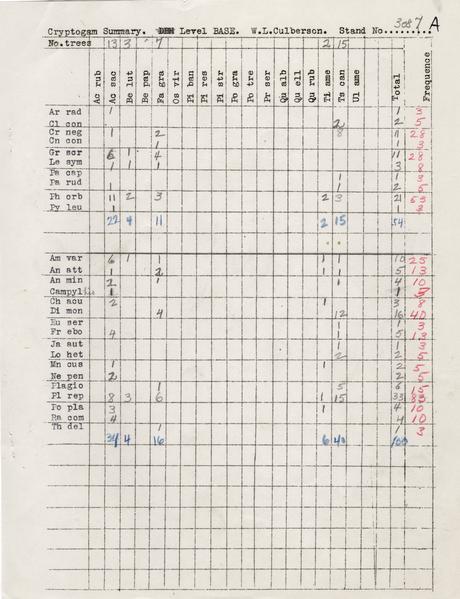 3087 A
Cryptogam Summary. Level BASE. W.L.Culberson. Stand No.........
No.trees 13 3 7 2 15
Ac rub Ac sac Be lut Be pap Fa gra Os vir Pi ban Pi res Pi str Po gra Po tre Pr ser Qu alb Qu ell Qu rub Ti ame Ts can Ul ame Total Frequence
Ar rad 1 1 3
Cl con 2 2 5
Cr neg 1 2 8 11 28
Cn con 1 1 3
Gr scr 6 1 4 11 28
Le sym 1 1 1 3 8
Pa cap 1 1 3
Pa rud 1 1 2 5
Ph orb 11 2 3 2 3 21 53
Py leu 1 1 3
22 4 11 2 15 54
Am var 6 1 1 1 1 10 25
An att 1 2 1 1 5 13
An min 2 1 1 4 10
Campyl 1 1 3
Ch acu 2 1 3 8
Di mon 4 12 16 40
Eu ser 1 1 3
Fr ebo 4 1 5 13
Ja aut 1 1 3
Lo het 2 2 5
Mn cus 1 1 2 5
Ne pen 2 2 5
Plagio 1 5 6 15
Pl rep 8 3 6 1 15 33 83
Po pla 3 1 4 10
Ra com 4 4 10
Th del 1 1 3
34 4 16 6 40 100